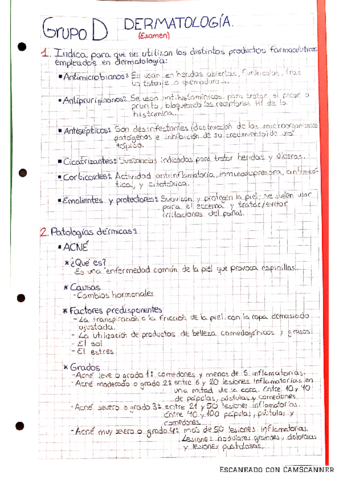 GRUPO D DERMATOLOGÍA.
(Examen)
1. Indica para que se utilizan los distintos productos farmacéuticos
empleados en dermatología:
• Antimicrobianos: Se usan en heridas abiertas, furúnculos, tras
un tatuaje o quemadura...
• Antipruriginosos: Se usan antihistamínicos para tratar el picor o
prurito, bloqueando los receptores H1 de la
histamina.
• Antisépticos: Son desinfectantes (destrucción de los microorganismos
patógenos e inhibición de su crecimiento) de uso
tópico.
• Cicatrizantes: Sustancias indicadas para tratar heridas y úlceras.
• Corticoides: Actividad antiinflamatoria, inmunosupresora, antimitó-
tica, y citotóxica.
• Emolientes y protectores: Suavizan y protegen la piel; se suelen usar
para el eccema y tratar/evitar
irritaciones del pañal.
2. Patologías dérmicas:
• ACNÉ
* ¿Qué es?
Es una enfermedad común de la piel que provoca espinillas.
* Causas
- Cambios hormonales
* Factores predisponentes
- La transpiración o la fricción de la piel con la ropa demasiado
ajustada.
- La utilización de productos de belleza comedogénicos y grasos.
- El sol
- El estrés
* Grados
- Acné leve o grado 1: comedones y menos de 5 inflamatorias.
- Acné moderado o grado 2: entre 6 y 20 lesiones inflamatorias en
una mitad de la cara. Entre 10 y 40
de pápulas, pústulas y comedones.
- Acné severo o grado 3: entre 21 y 50 lesiones inflamatorias.
Entre 40 y 100 pápulas, pústulas y
comedones.
- Acné muy severo o grado 4: más de 50 lesiones inflamatorias.
Lesiones nodulares grandes, dolorosas
y lesiones pustulosas.
ESCANEADO CON CAMSCANNER